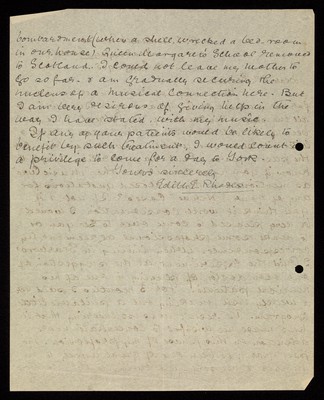 bombardment (when a shell wrecked a bed-room
in our house). Queen Margaret's School removed
to Scotland. I could not leave my Mother to
go so far. & am gradually securing the
nucleus of a musical connection here. But
I am very desirous of giving help in the
way I have stated, with my music.
If any of your patients would be likely to
benefit by such treatment, I would count it
a privilege to come for a day to York.
Yours sincerely
Edith E.